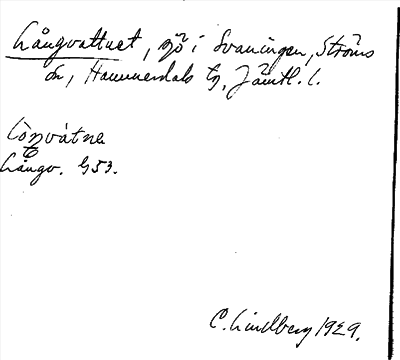 Långvattnet, sjö i Svaningen, Ströms
sn, Hammerdals tg, Jämtl. l.
lòŋvàtnə
Långv. G53.
C. Lindberg 1929.